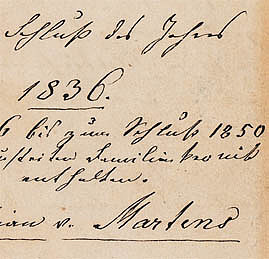 Schluß des Jahres
1836.
bis zum Schluß 1850
Familienkronik
enthalten.
v. Martens